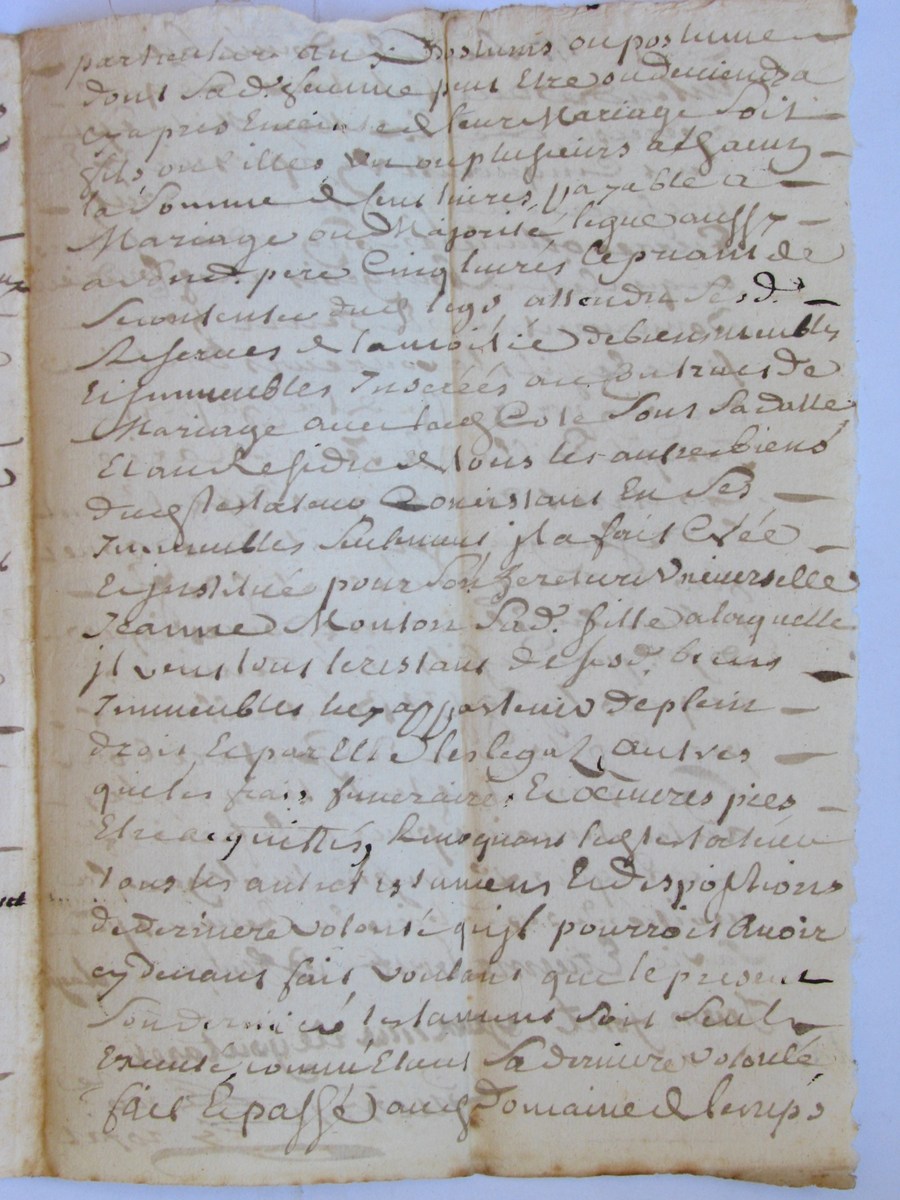 particulier au postume ou postumes
dont Sad. femme peut Etre ou deviendra
cy apres Enceinte de leur Mariage Soit
fils ou filles un ou plusieurs a chacun
la Somme de Cent livres payable a
Mariage ou Majorité legue aussy
a Sond. pere Cinq livres Ce priant de
Se contenter dud legs attendu Sesd.
Reserves de la moitié de biens meubles
Et immeubles Inserées au Contract de
Mariage avec lad Cole Sous Sa datte
Et au Residu de tous les autres biens
dud testateur Consistant En Ses
Immeubles Seulement jl a fait Créé
Et jnstitué pour Son heretiere Universelle
Jeanne Mouton Sad. fille a laquelle
jl veut tout le restant de Sesd. biens
Immeubles luy appartenir de plein
droit Et par Elle les legats autres
que les frais funeraires Et Oeuvres pies
Etre acquittés, Revoquant led testateur
tous les autres testamens Et dispositions
de derniere volonté qu'jl pourroit Avoir
cy devant fait, voulant que le present
Son dernier testament soit Seul
Executé comme Etant Sa derniere volonté
fait Et passé aud Domaine de